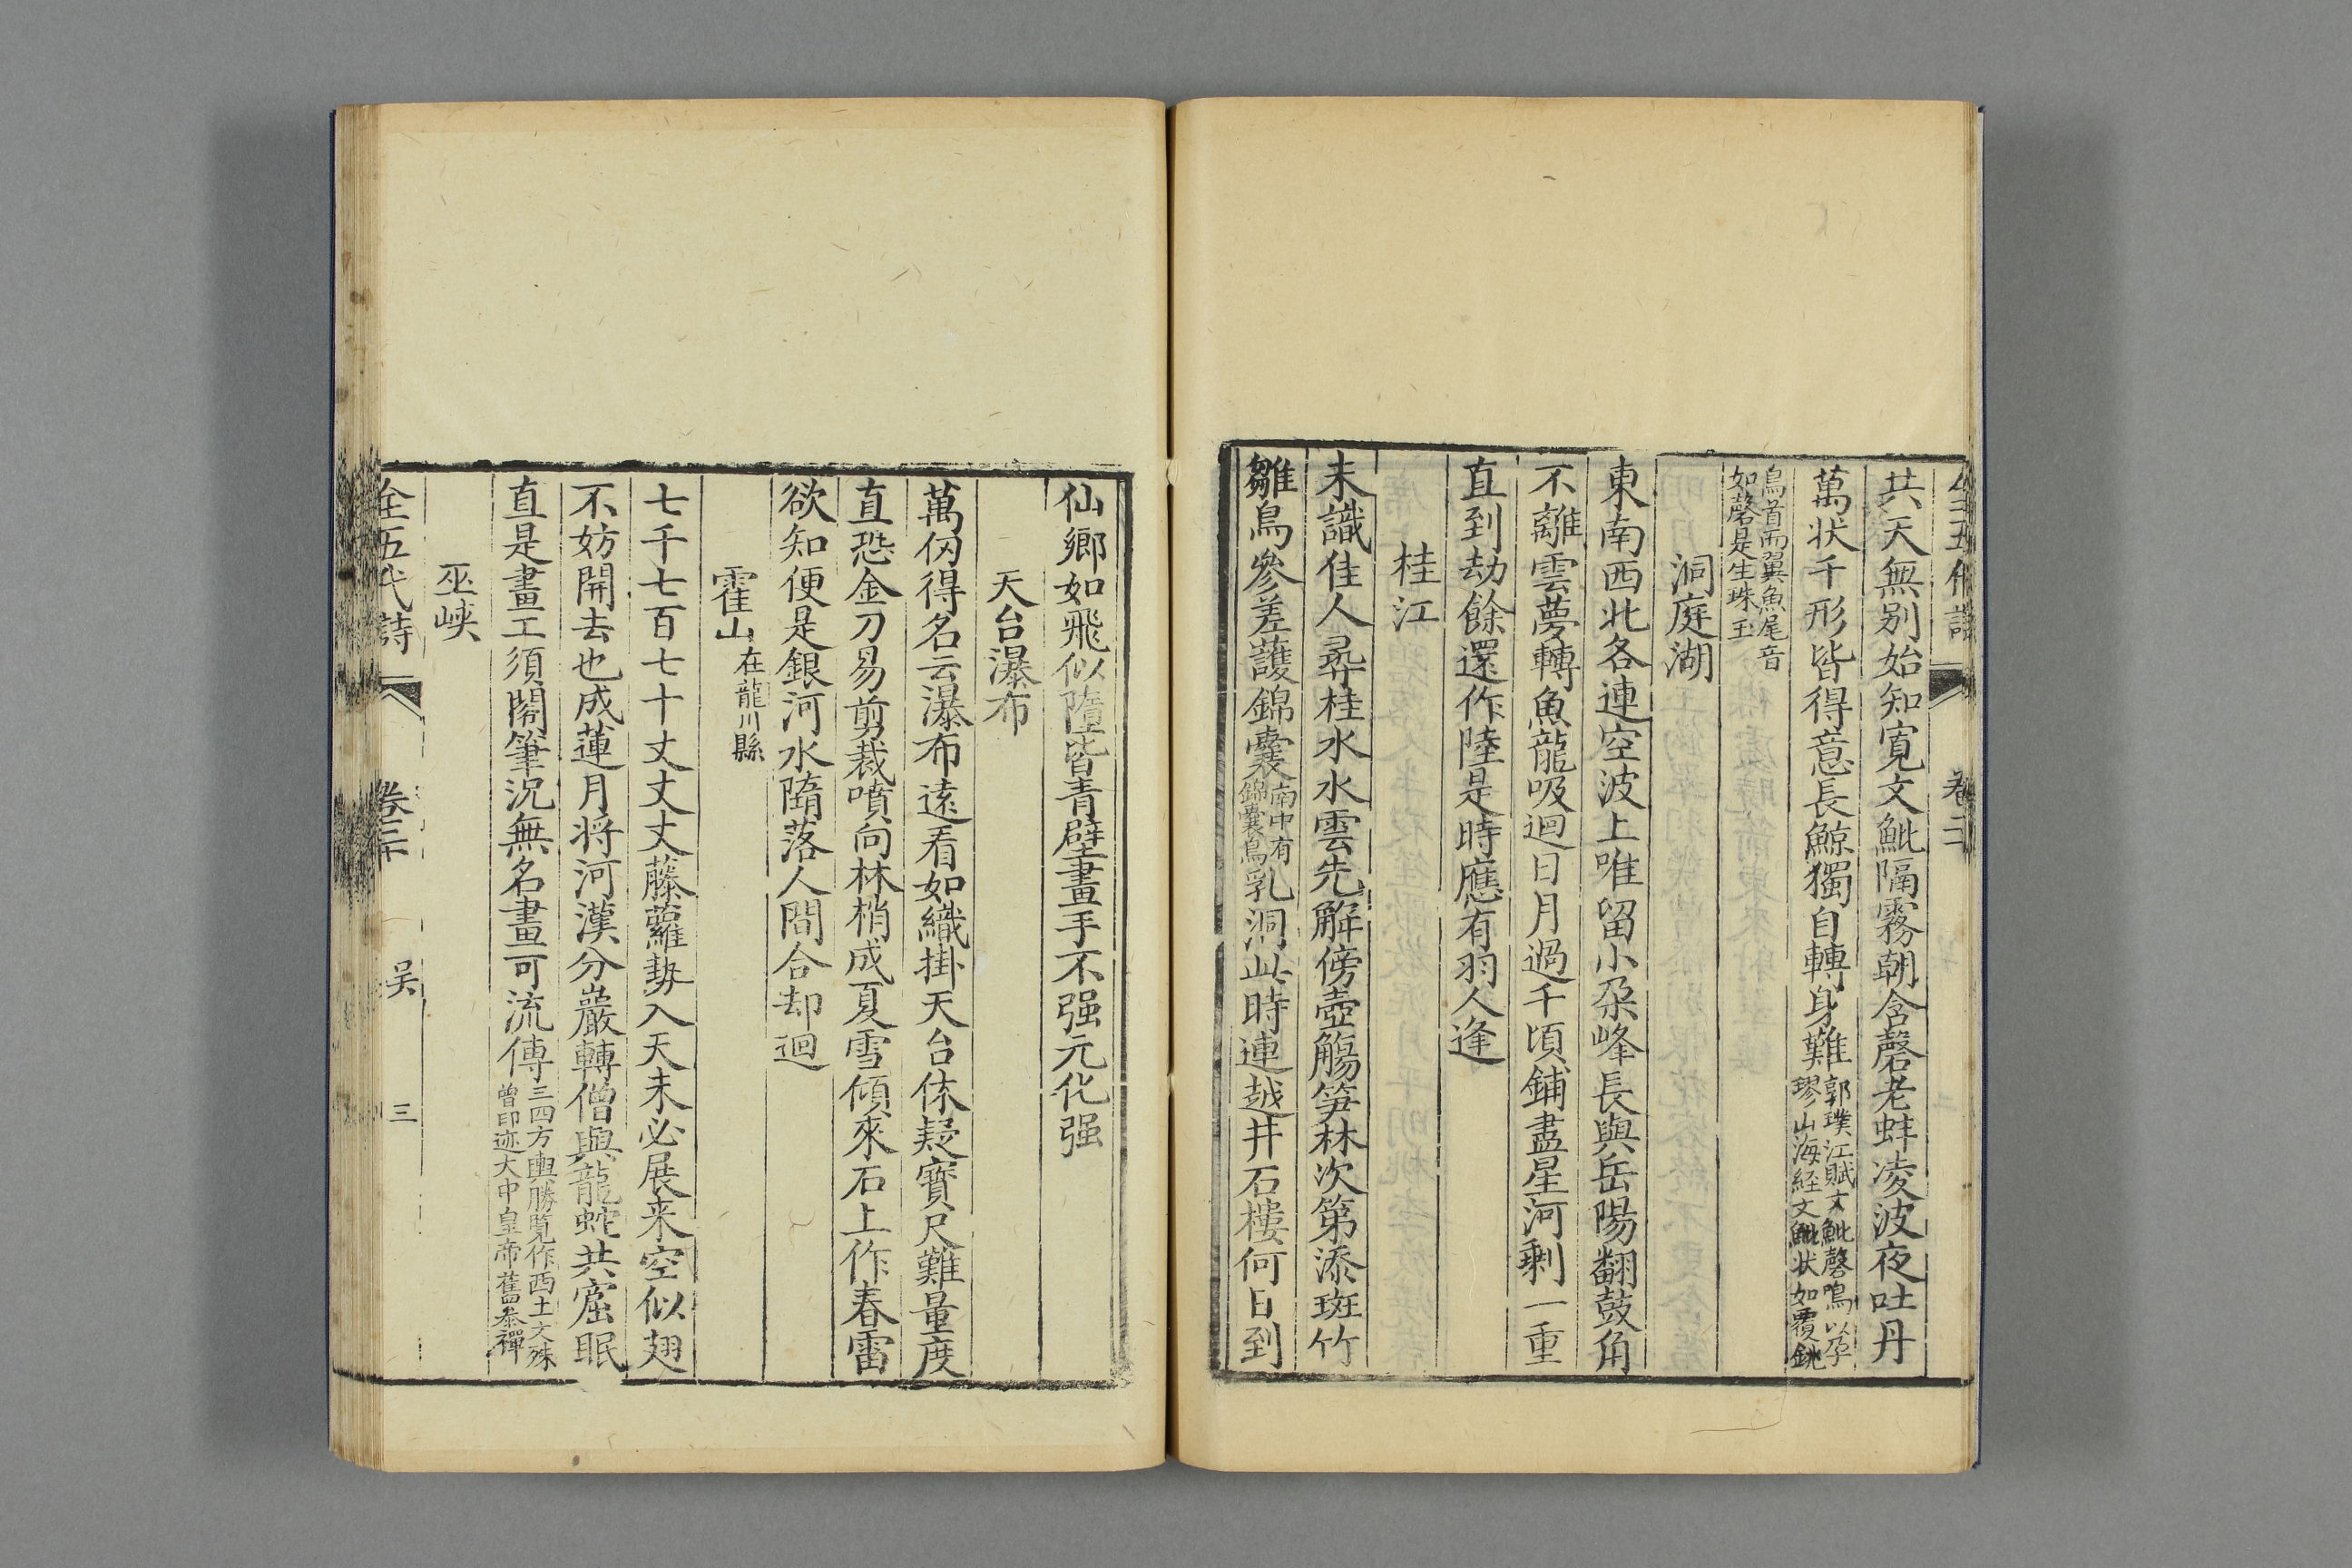 全五代詩
卷二
共天無别始知寬文魮隔霧朝含磬老蚌凌波夜吐丹
萬状千形皆得意長鯨獨自轉身難郭璞江賦文魮磬鳴以孕
璆山海経文魮状如覆銚
鳥首而翼魚尾音
如磬是生珠玉
洞庭湖
東南西北各連空波上唯留小朶峰長與岳陽翻鼓角
不離雲夢轉魚龍吸迴日月過千頃鋪盡星河剩一重
直到劫餘還作陸是時應有羽人逢
桂江
未識佳人㝷桂水水雲先解傍壺觴笋林次第添斑竹
雛鳥參差護錦囊南中有
錦囊鳥乳洞此時連越井石樓何日到
仙鄉如飛似墮皆青壁畫手不强元化强
天台瀑布
萬仞得名云瀑布遠看如織掛天台休疑寶尺難量度
直恐金刀易剪裁噴向林梢成夏雪傾來石上作春雷
欲知便是銀河水隋落人間合却迴
霍山在龍川縣
七千七百七十丈丈丈藤蘿勢入天未必展来空似翅
不妨開去也成蓮月将河漢分巖轉僧與龍蛇共窟眠
直是畫工須閣筆況無名畫可流傳三四方輿勝覧作西土文殊
曾印迹大中皇帝舊叅禪
巫峡
全五代詩
卷二
吴
三